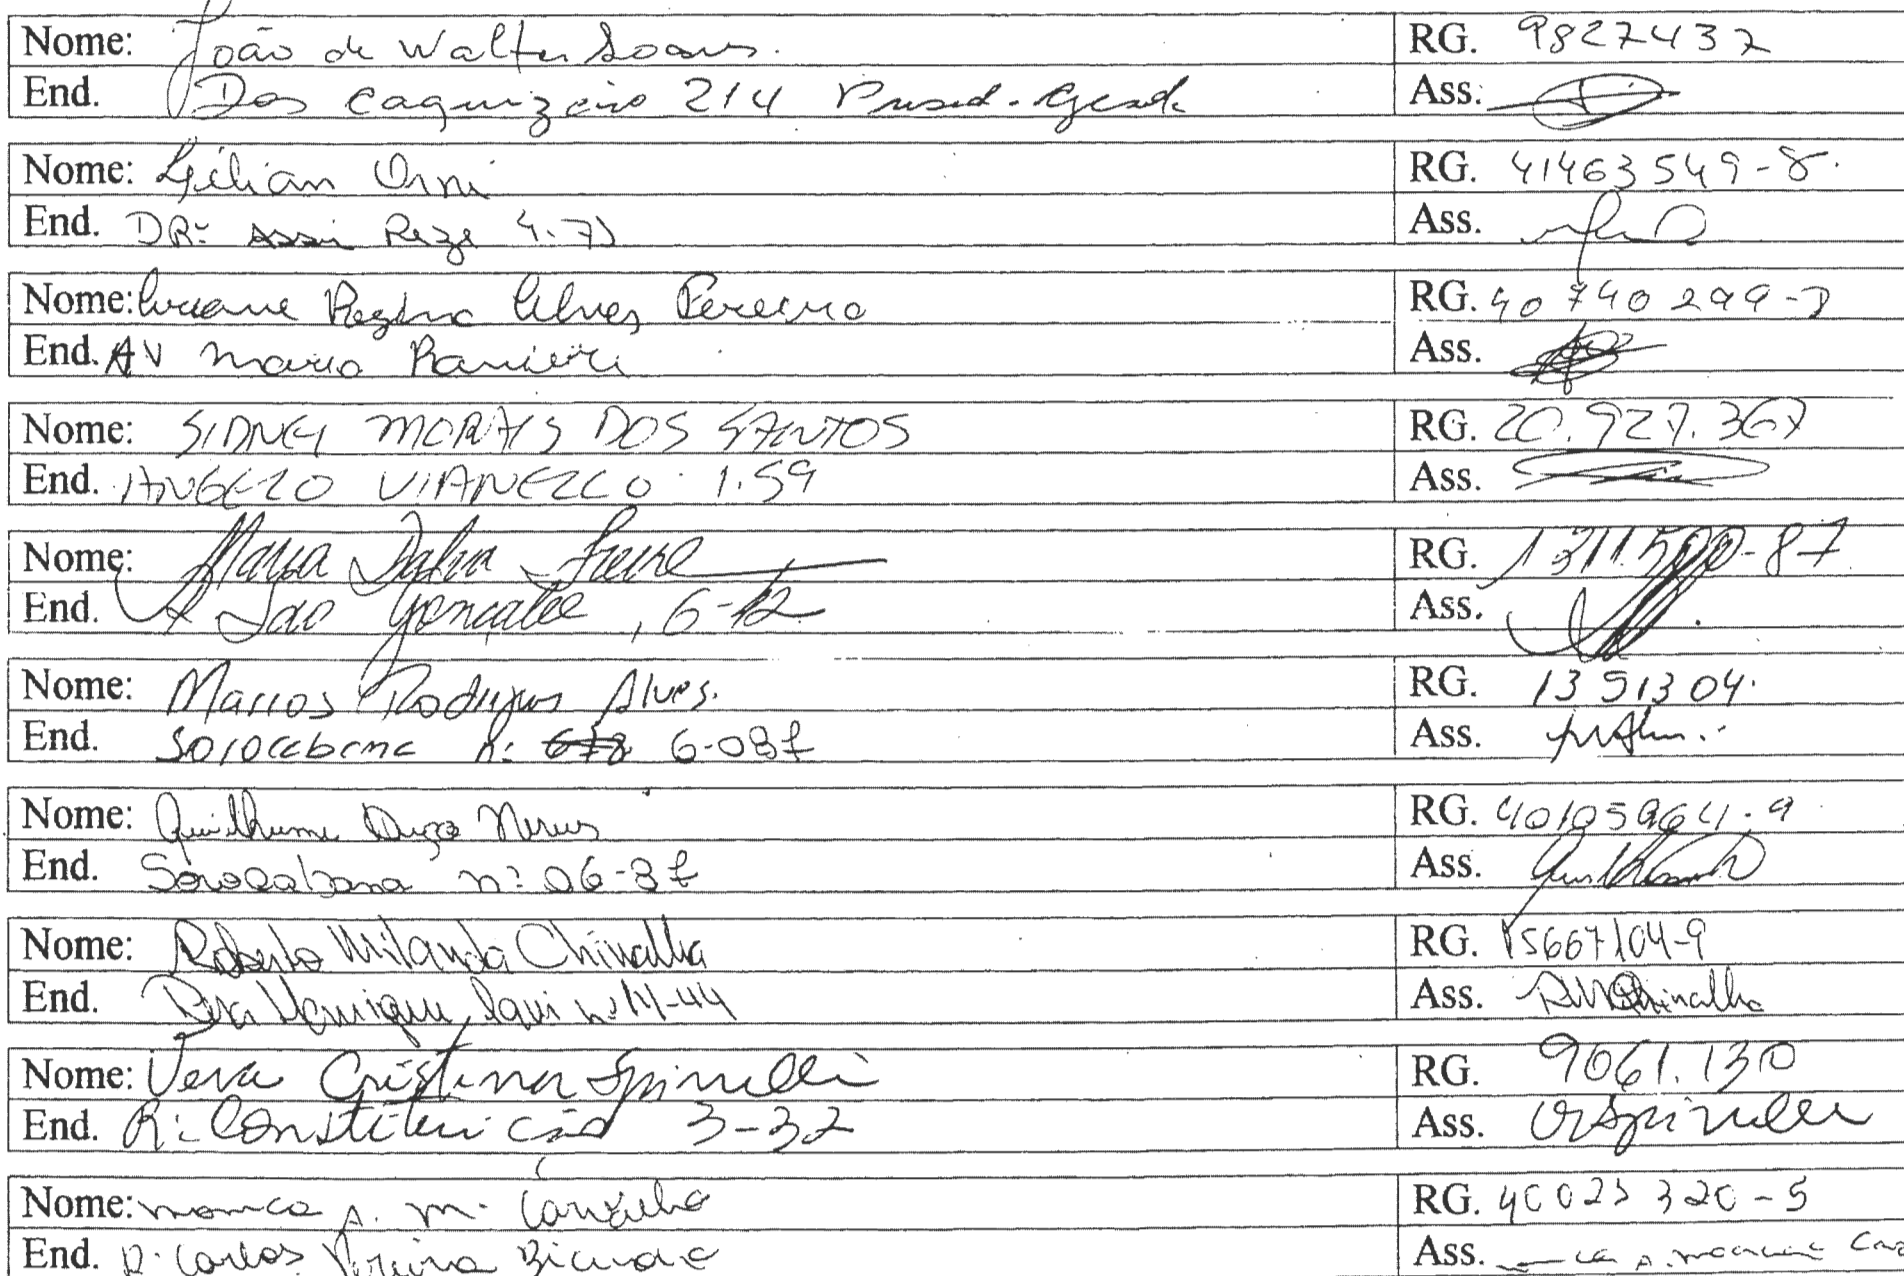 Nome: João de Walter Soares. RG. 9827437
End. Dos caquizeiro 214 Ass.
Nome: RG. 41463549-8.
End. DRº Assis Reze 4.71 Ass.
Nome: Luciane Regina Alves Pereira RG. 40740299-
End. AV Maria Ranieri Ass.
Nome: SIDNEY MORAIS DOS SANTOS RG. 20.927.367
End. ANGELO VIANELLO 1.59 Ass.
Nome: Maria Dalva Freire RG. 1311.500-87
End. R São Gonçalo, 6-12 Ass.
Nome: Marcos Rodrigues Alves. RG. 1351304.
End. Sorocabana nº 6-087 Ass.
Nome: Guilherme Neves RG. 40105964.9
End. Sorocabana nº 06-87 Ass.
Nome: Roberto Milanda Chinalha RG. 15667104-9
End. Henrique nº 14-44 Ass. RMChinalha
Nome: Vera Cristina Spinelli RG. 9061.130
End. R: Constituição 3-32 Ass. VCSpinelli
Nome: monica A. M. Carvalho RG. 40025320-5
End. R. Carlos Pereira Bicudo Ass.